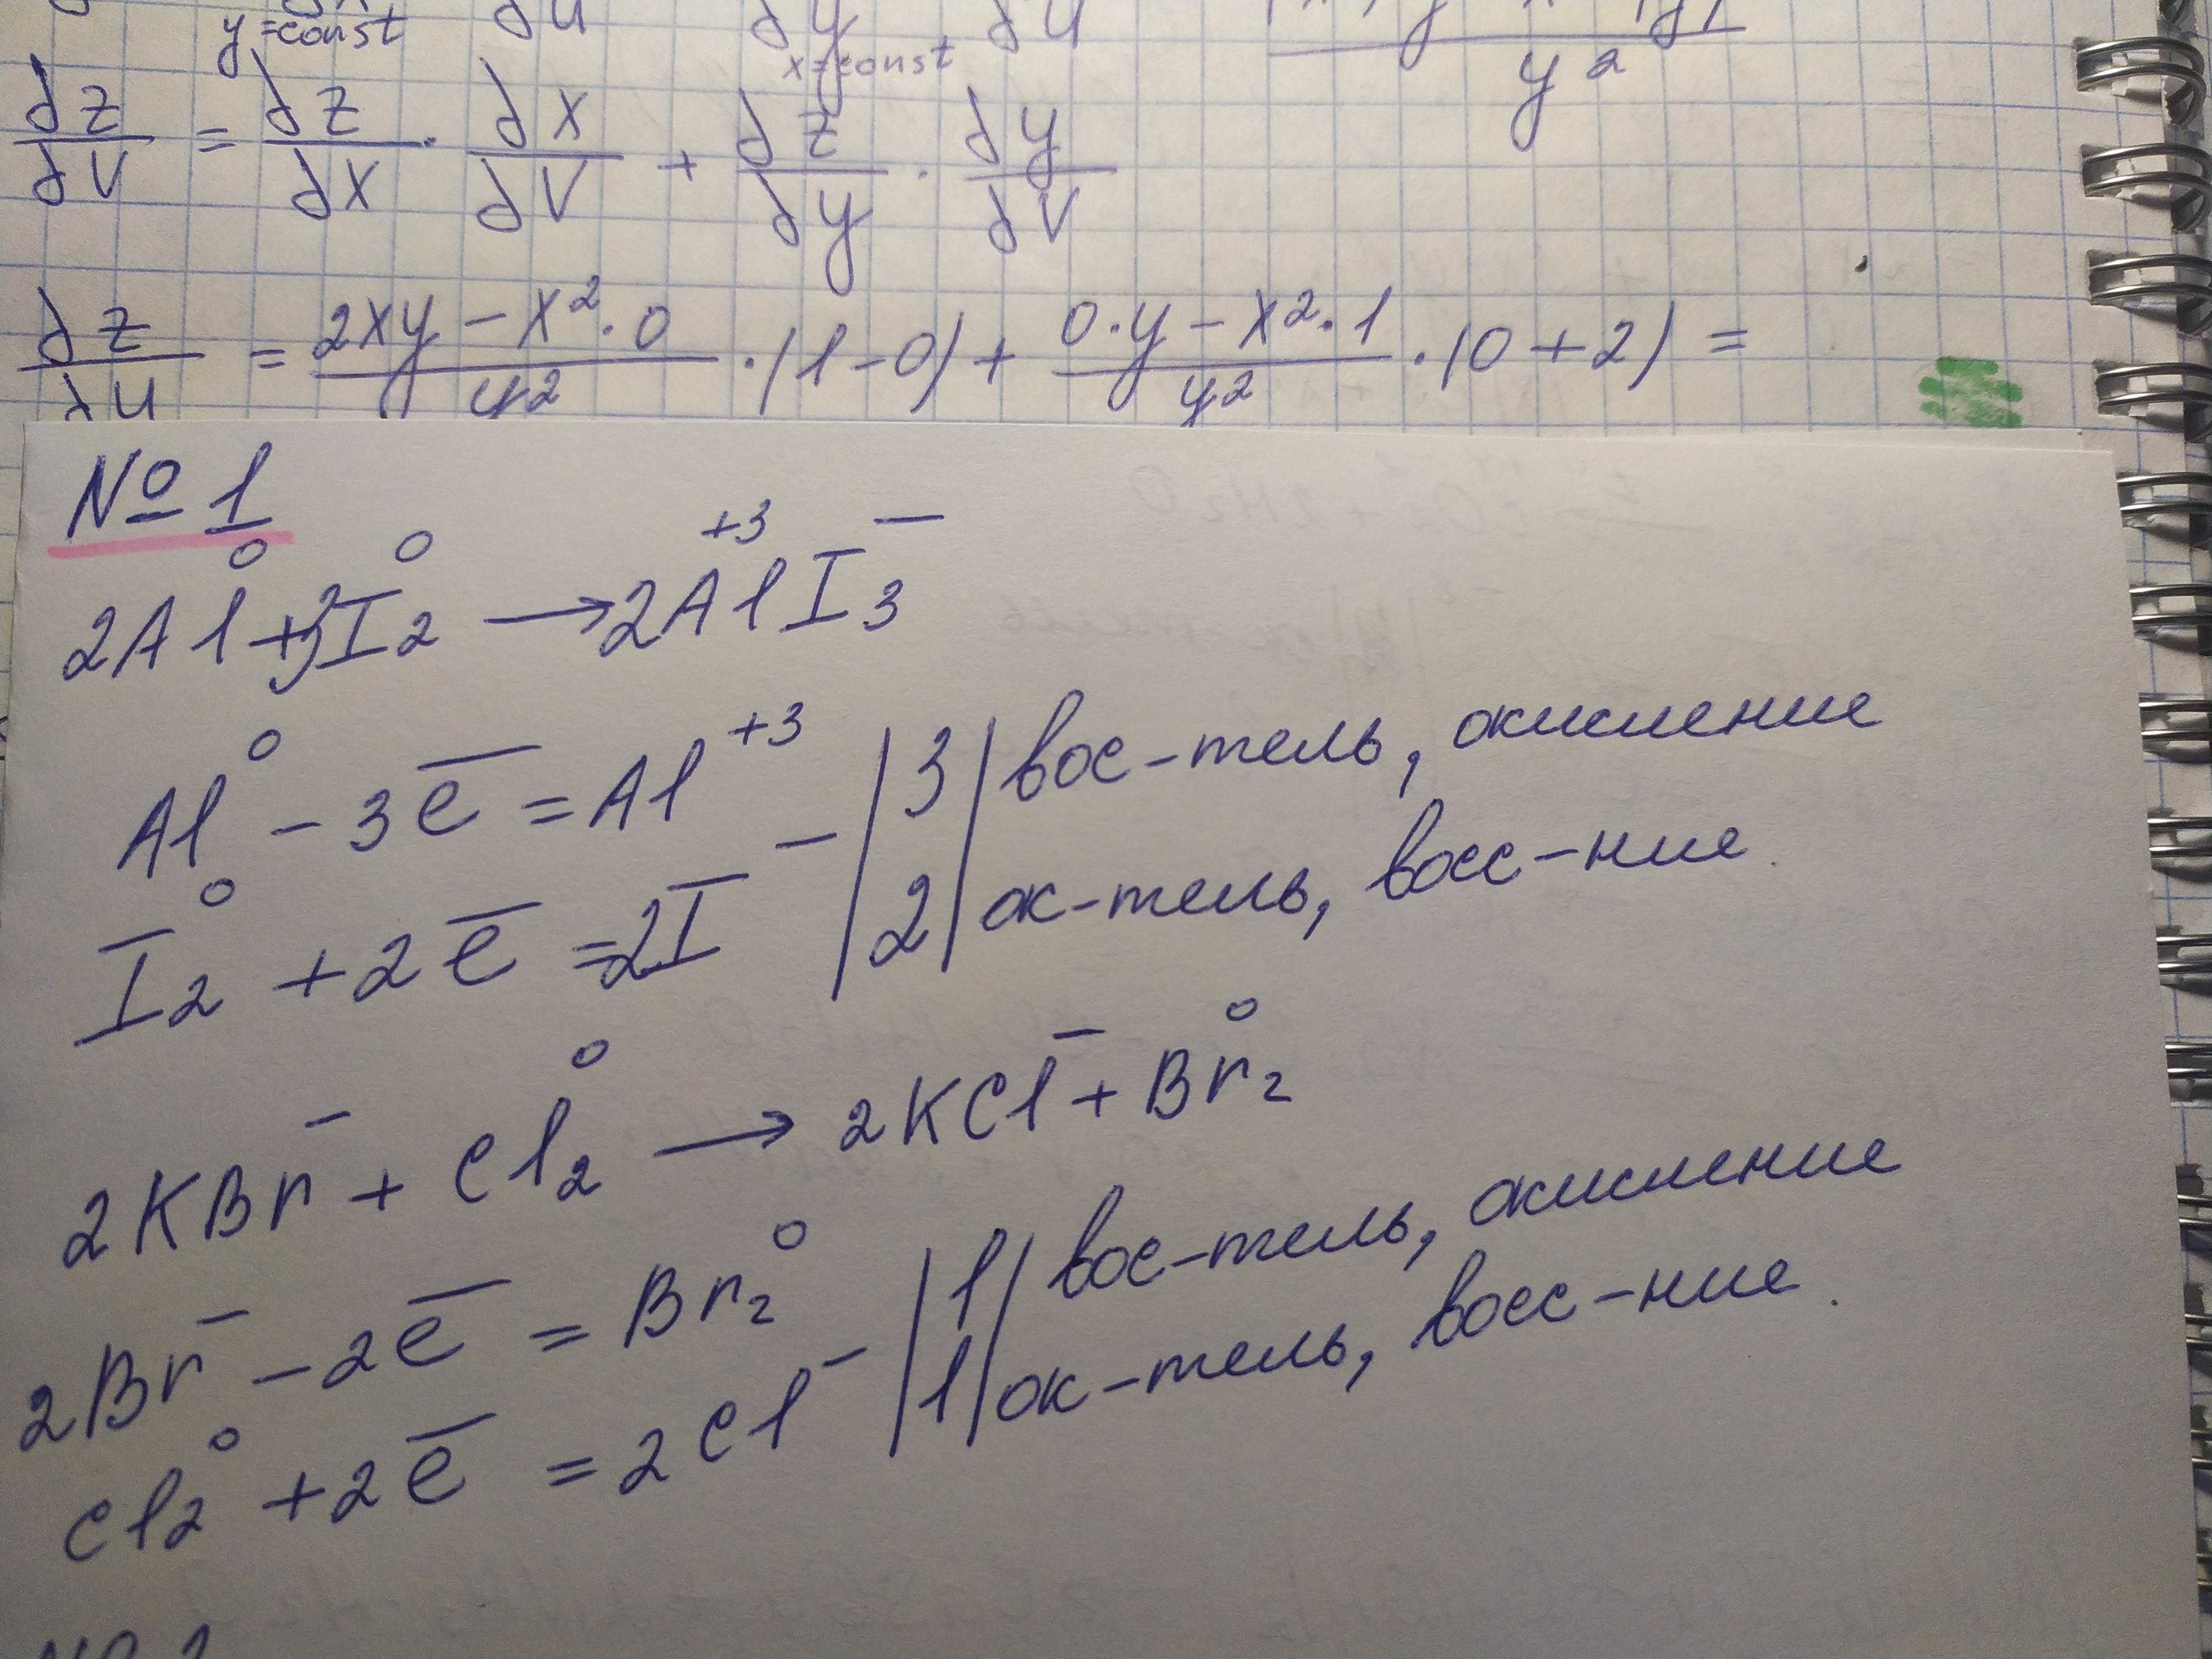 y=const ∂u ∂y ∂u
x=const y²
∂z/∂v = ∂z/∂x · ∂x/∂v + ∂z/∂y · ∂y/∂v
∂z/∂u = (2xy - x²·0)/y² · (1-0) + (0·y - x²·1)/y² · (0+2) =
№1
2Al⁰ + 3I₂⁰ → 2Al⁺³I₃⁻
Al⁰ - 3e̅ = Al⁺³ | 3 | вос-тель, окисление
I₂⁰ + 2e̅ = 2I⁻ | 2 | ок-тель, восс-ние.
2KBr⁻ + Cl₂⁰ → 2KCl⁻ + Br₂⁰
2Br⁻ - 2e̅ = Br₂⁰ | 1 | вос-тель, окисление
Cl₂⁰ + 2e̅ = 2Cl⁻ | 1 | ок-тель, восс-ние.